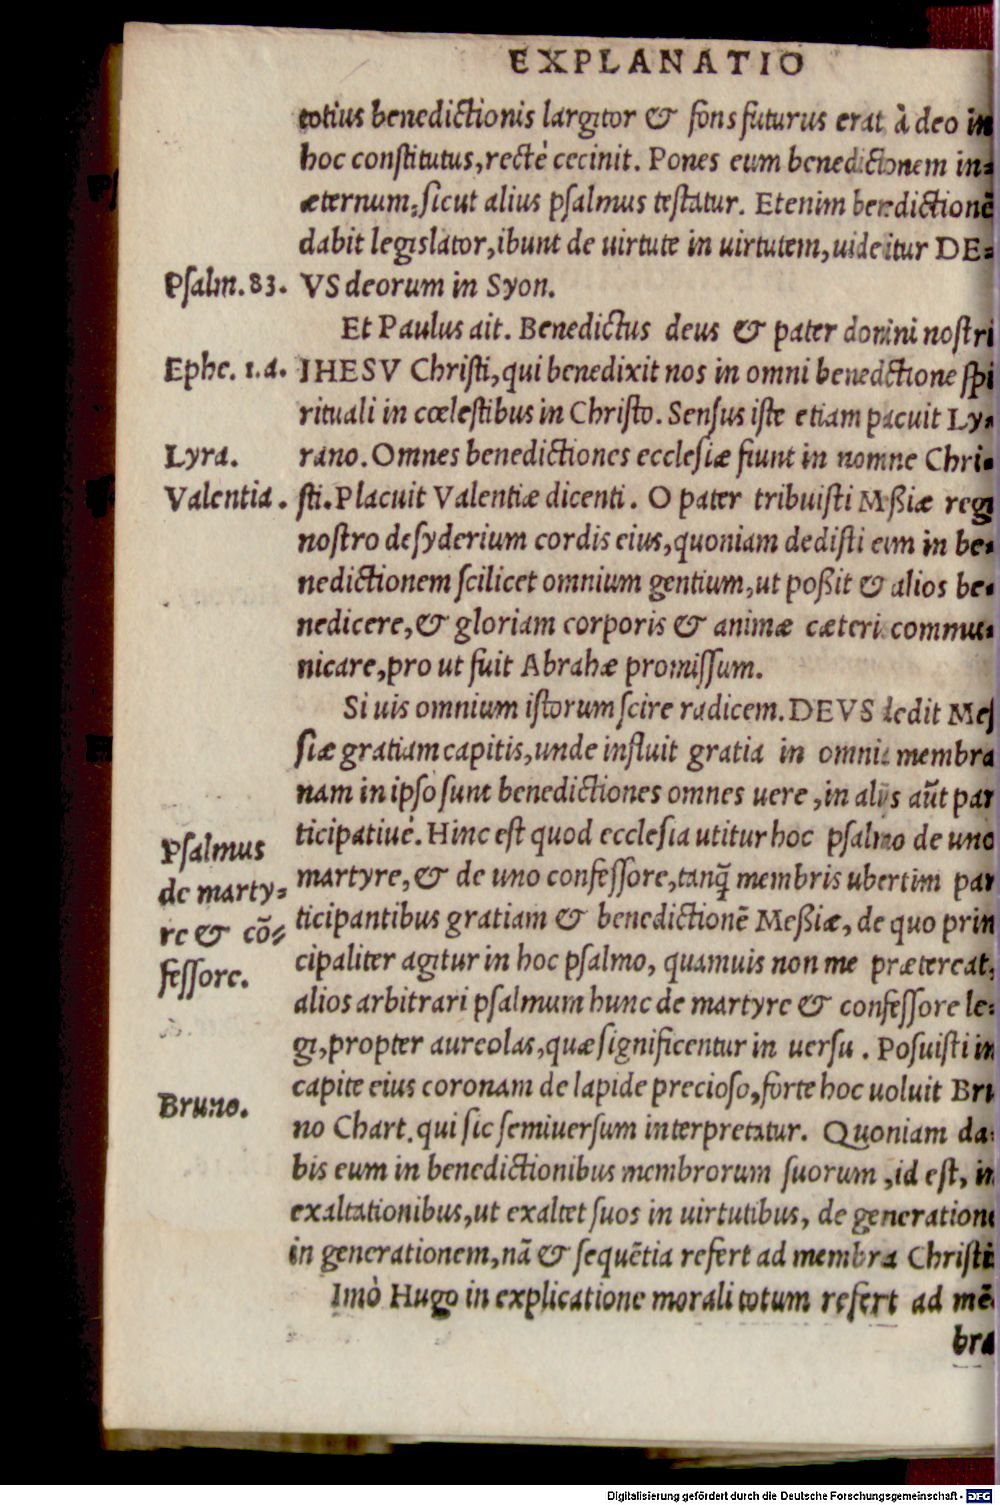 EXPLANATIO
totius benedictionis largitor & fons futurus erat à deo in
hoc constitutus, recté cecinit. Pones eum benedictionem in=
æternum, sicut alius psalmus testatur. Etenim benedictionē
dabit legislator, ibunt de uirtute in uirtutem, uidebitur DE=
Psalm. 83. VS deorum in Syon.
Et Paulus ait. Benedictus deus & pater domini nostri
Ephe. 1. a. IHESV Christi, qui benedixit nos in omni benedictione spi
rituali in cœlestibus in Christo. Sensus iste etiam placuit Ly=
Lyra. rano. Omnes benedictiones ecclesiæ fiunt in nomine Chri=
Valentia. sti. Placuit Valentiæ dicenti. O pater tribuisti Meßiæ regi
nostro desyderium cordis eius, quoniam dedisti eum in be=
nedictionem scilicet omnium gentium, ut poßit & alios be=
nedicere, & gloriam corporis & animæ cæteris commu=
nicare, pro ut fuit Abrahæ promissum.
Si uis omnium istorum scire radicem. DEVS dedit Mes
siæ gratiam capitis, unde influit gratia in omnia membra
nam in ipso sunt benedictiones omnes uere, in alijs aūt par
ticipatiué. Hinc est quod ecclesia utitur hoc psalmo de uno
Psalmus
de marty=
re & cō=
fessore.
martyre, & de uno confessore, tanq̄ membris ubertim par
ticipantibus gratiam & benedictionē Meßiæ, de quo prin
cipaliter agitur in hoc psalmo, quamuis non me prætereat,
alios arbitrari psalmum hunc de martyre & confessore le=
gi, propter aureolas, quæ significentur in uersu. Posuisti in
capite eius coronam de lapide precioso, forte hoc uoluit Bru
Bruno. no Chart. qui sic semiuersum interpretatur. Quoniam da=
bis eum in benedictionibus membrorum suorum, id est, in
exaltationibus, ut exaltet suos in uirtutibus, de generatione
in generationem, nā & sequētia refert ad membra Christi.
Imò Hugo in explicatione morali totum refert ad mē=
bra
Digitalisierung gefördert durch die Deutsche Forschungsgemeinschaft - DFG